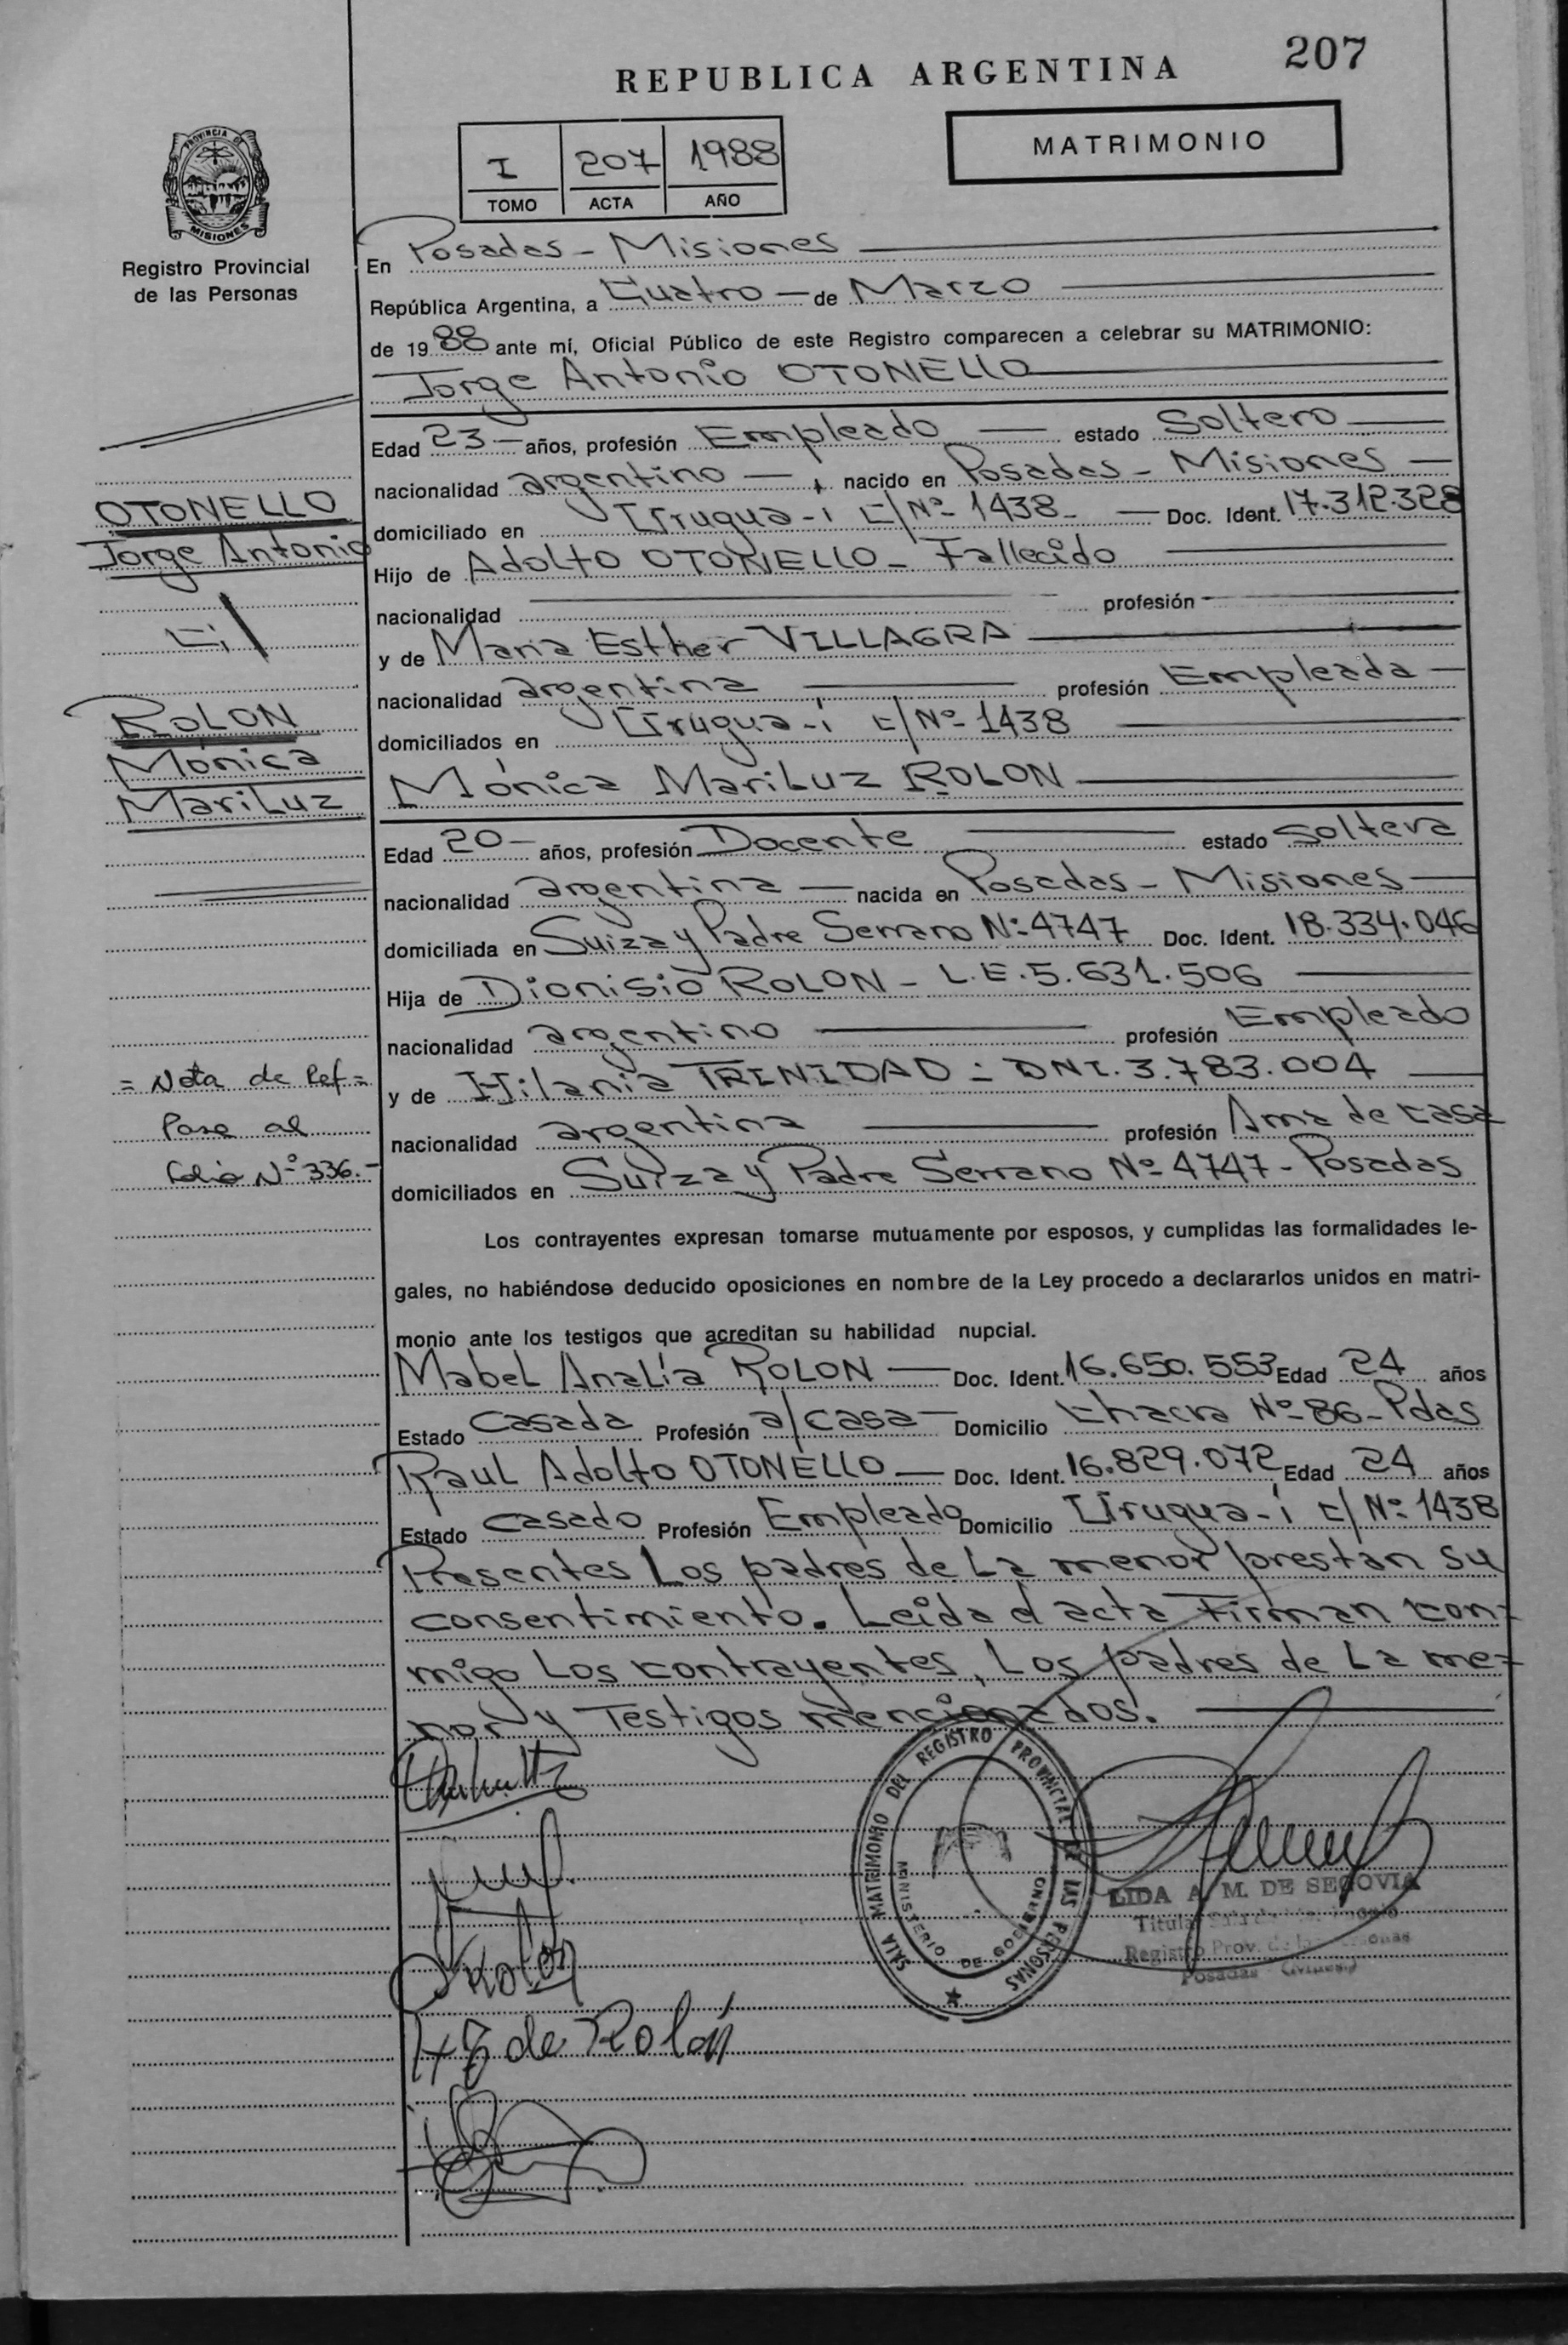 207
REPUBLICA ARGENTINA
MATRIMONIO
I 207 1988
TOMO ACTA AÑO
PROVINCIA DE MISIONES
Registro Provincial
de las Personas
En Posadas - Misiones
República Argentina, a Cuatro — de Marzo
de 1988 ante mí, Oficial Público de este Registro comparecen a celebrar su MATRIMONIO:
Jorge Antonio OTONELLO
Edad 23 — años, profesión Empleado — estado Soltero —
nacionalidad argentino —, nacido en Posadas - Misiones —
domiciliado en Urugua-í C/Nº 1438 - — Doc. Ident. 17.312.328
Hijo de Adolfo OTONELLO - Fallecido
nacionalidad — profesión —
y de María Esther VILLAGRA
nacionalidad argentina — profesión Empleada —
domiciliados en Urugua-í C/Nº 1438
Mónica MariLuz ROLON
Edad 20 — años, profesión Docente — estado soltera
nacionalidad argentina — nacida en Posadas - Misiones —
domiciliada en Suiza y Padre Serrano Nº 4747 Doc. Ident. 18.334.046
Hija de Dionisio ROLON - L.E. 5.631.506
nacionalidad argentino — profesión Empleado
y de Hilaria TRINIDAD - DNI. 3.783.004 —
nacionalidad argentina — profesión Ama de casa
domiciliados en Suiza y Padre Serrano Nº 4747 - Posadas
Los contrayentes expresan tomarse mutuamente por esposos, y cumplidas las formalidades le-
gales, no habiéndose deducido oposiciones en nombre de la Ley procedo a declararlos unidos en matri-
monio ante los testigos que acreditan su habilidad nupcial.
Mabel Analía ROLON — Doc. Ident. 16.650.553 Edad 24 años
Estado Casada Profesión a/casa — Domicilio Chacra Nº 86 - Pdas
Raul Adolfo OTONELLO — Doc. Ident. 16.829.072 Edad 24 años
Estado casado Profesión Empleado Domicilio Urugua-í C/Nº 1438
Presentes Los padres de La menor prestan su
consentimiento. Leida el acta Firman con-
migo Los contrayentes, Los padres de La me-
nor y Testigos mencionados.
OTONELLO
Jorge Antonio
c/
ROLON
Mónica
MariLuz
= Nota de Ref =
Pase al
folio Nº 336.-
Rolón
H T de Rolón
SALA MATRIMONIO DEL REGISTRO PROVINCIAL DE LAS PERSONAS
MINISTERIO DE GOBIERNO
LIDA A. M. DE SEGOVIA
Titular Sala de Matrimonio
Registro Prov. de las Personas
Posadas (Mnes.)